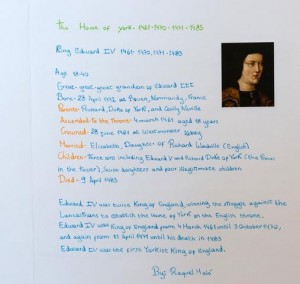 The House of York · 1461-1470 · 1471-1485
King Edward IV 1461-1470, 1471-1483
Age 18-40
Great-great-great grandson of Edward III
Born - 28 April 1442 at Rouen, Normandy, France
Parents - Richard, Duke of York, and Cecily Neville
Ascended to the throne - 4 March 1461 aged 18 years
Crowned - 28 June 1461 at Westminster Abbey
Married - Elizabeth, Daughter of Richard Woodville (English)
Children - Three sons including Edward V and Richard Duke of York (the Princes
in the Tower), seven daughters and four illegitimate children
Died - 9 April 1483
Edward IV was twice King of England, winning the struggle against the
Lancastrians to establish the House of York on the English throne.
Edward IV was King of England from 4 March 1461 until 3 October 1470,
and again from 11 April 1471 until his death in 1483
Edward IV was the first Yorkist King of England.
By: Raquel